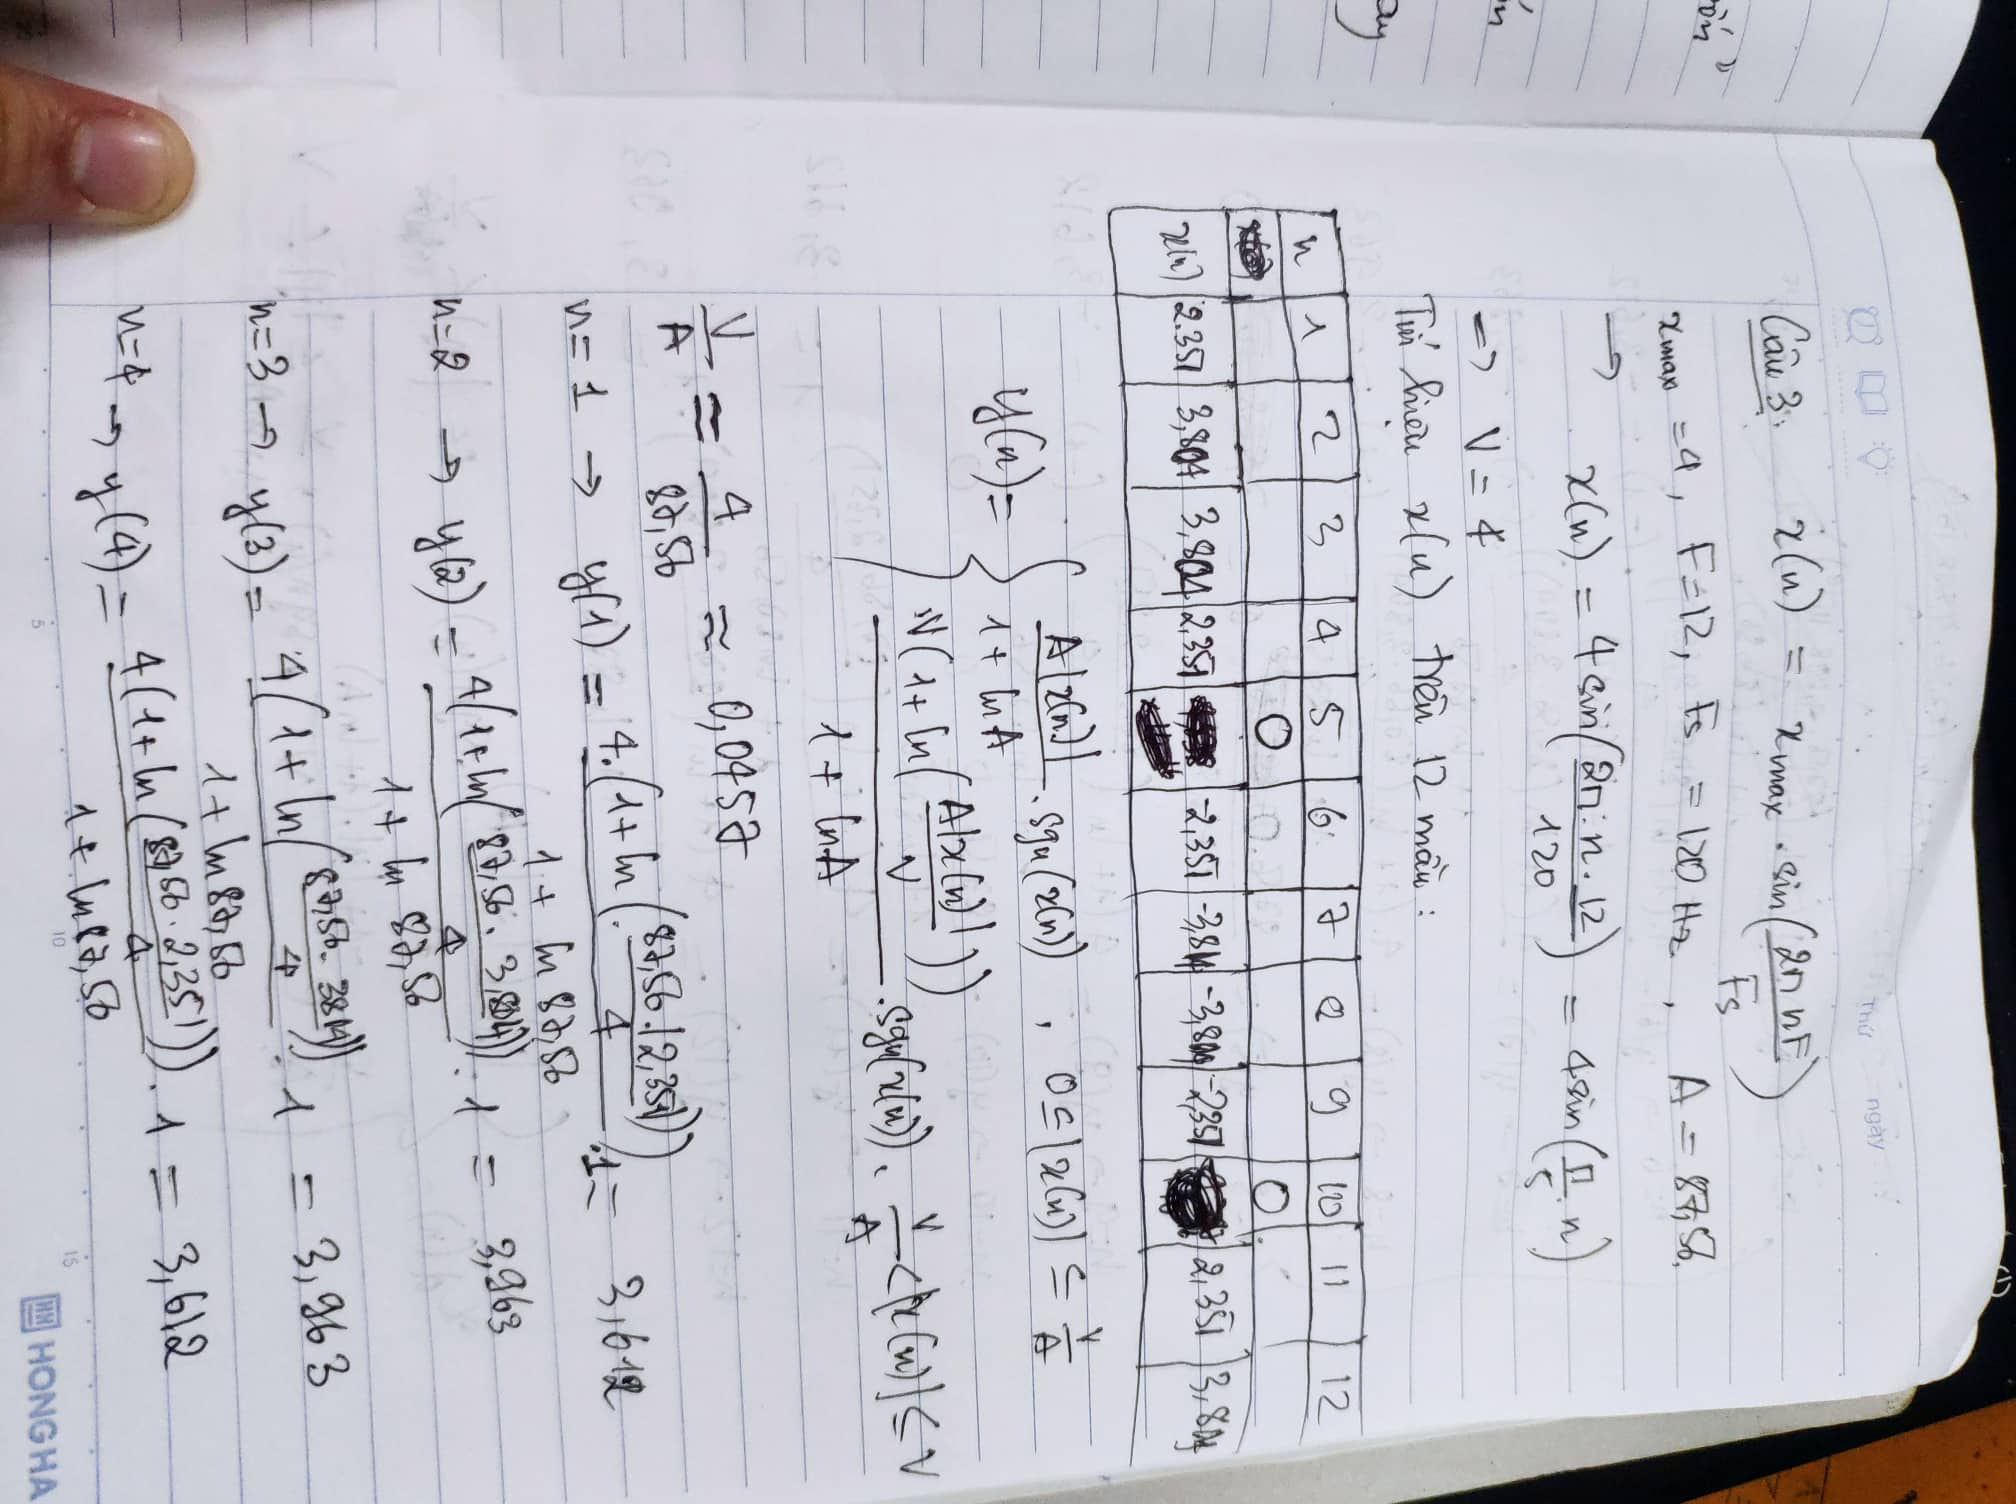 Thứ ngày
Câu 3: x(n) = xmax . sin(2πnF/Fs)
xmax = 4, F=12, Fs = 120 Hz, A = 87,56
→ x(n) = 4 sin(2π.n.12/120) = 4sin(π/5 n)
=> V = 4
Tín hiệu x(n) trên 12 mẫu:
n 1 2 3 4 5 6 7 8 9 10 11 12
0 0
x(n) 2.351 3,804 3,804 2,351 -2,351 -3,804 -3,804 -2,351 2,351 3,804
y(n) = { A|x(n)|/1+lnA . sgn(x(n)) , 0≤|x(n)| ≤ V/A
V(1+ln(A|x(n)|/V))/1+lnA . sgn(x(n)), V/A <|x(n)|≤V
V/A = 4/87,56 ≈ 0,0457
n=1 → y(1) = 4.(1+ln(87,56.|2,351|/4))/1+ln 87,56 .1= 3,612
n=2 → y(2) = 4(1+ln(87,56.3,804/4))/1+ln 87,56 . 1 = 3,963
n=3 → y(3) = 4(1+ln(87,56.3804/4))/1+ln87,56 . 1 = 3,963
n=4 → y(4) = 4(1+ln(87,56.2,351/4))/1+ln87,56 . 1 = 3,612
5 10 15
HONG HA